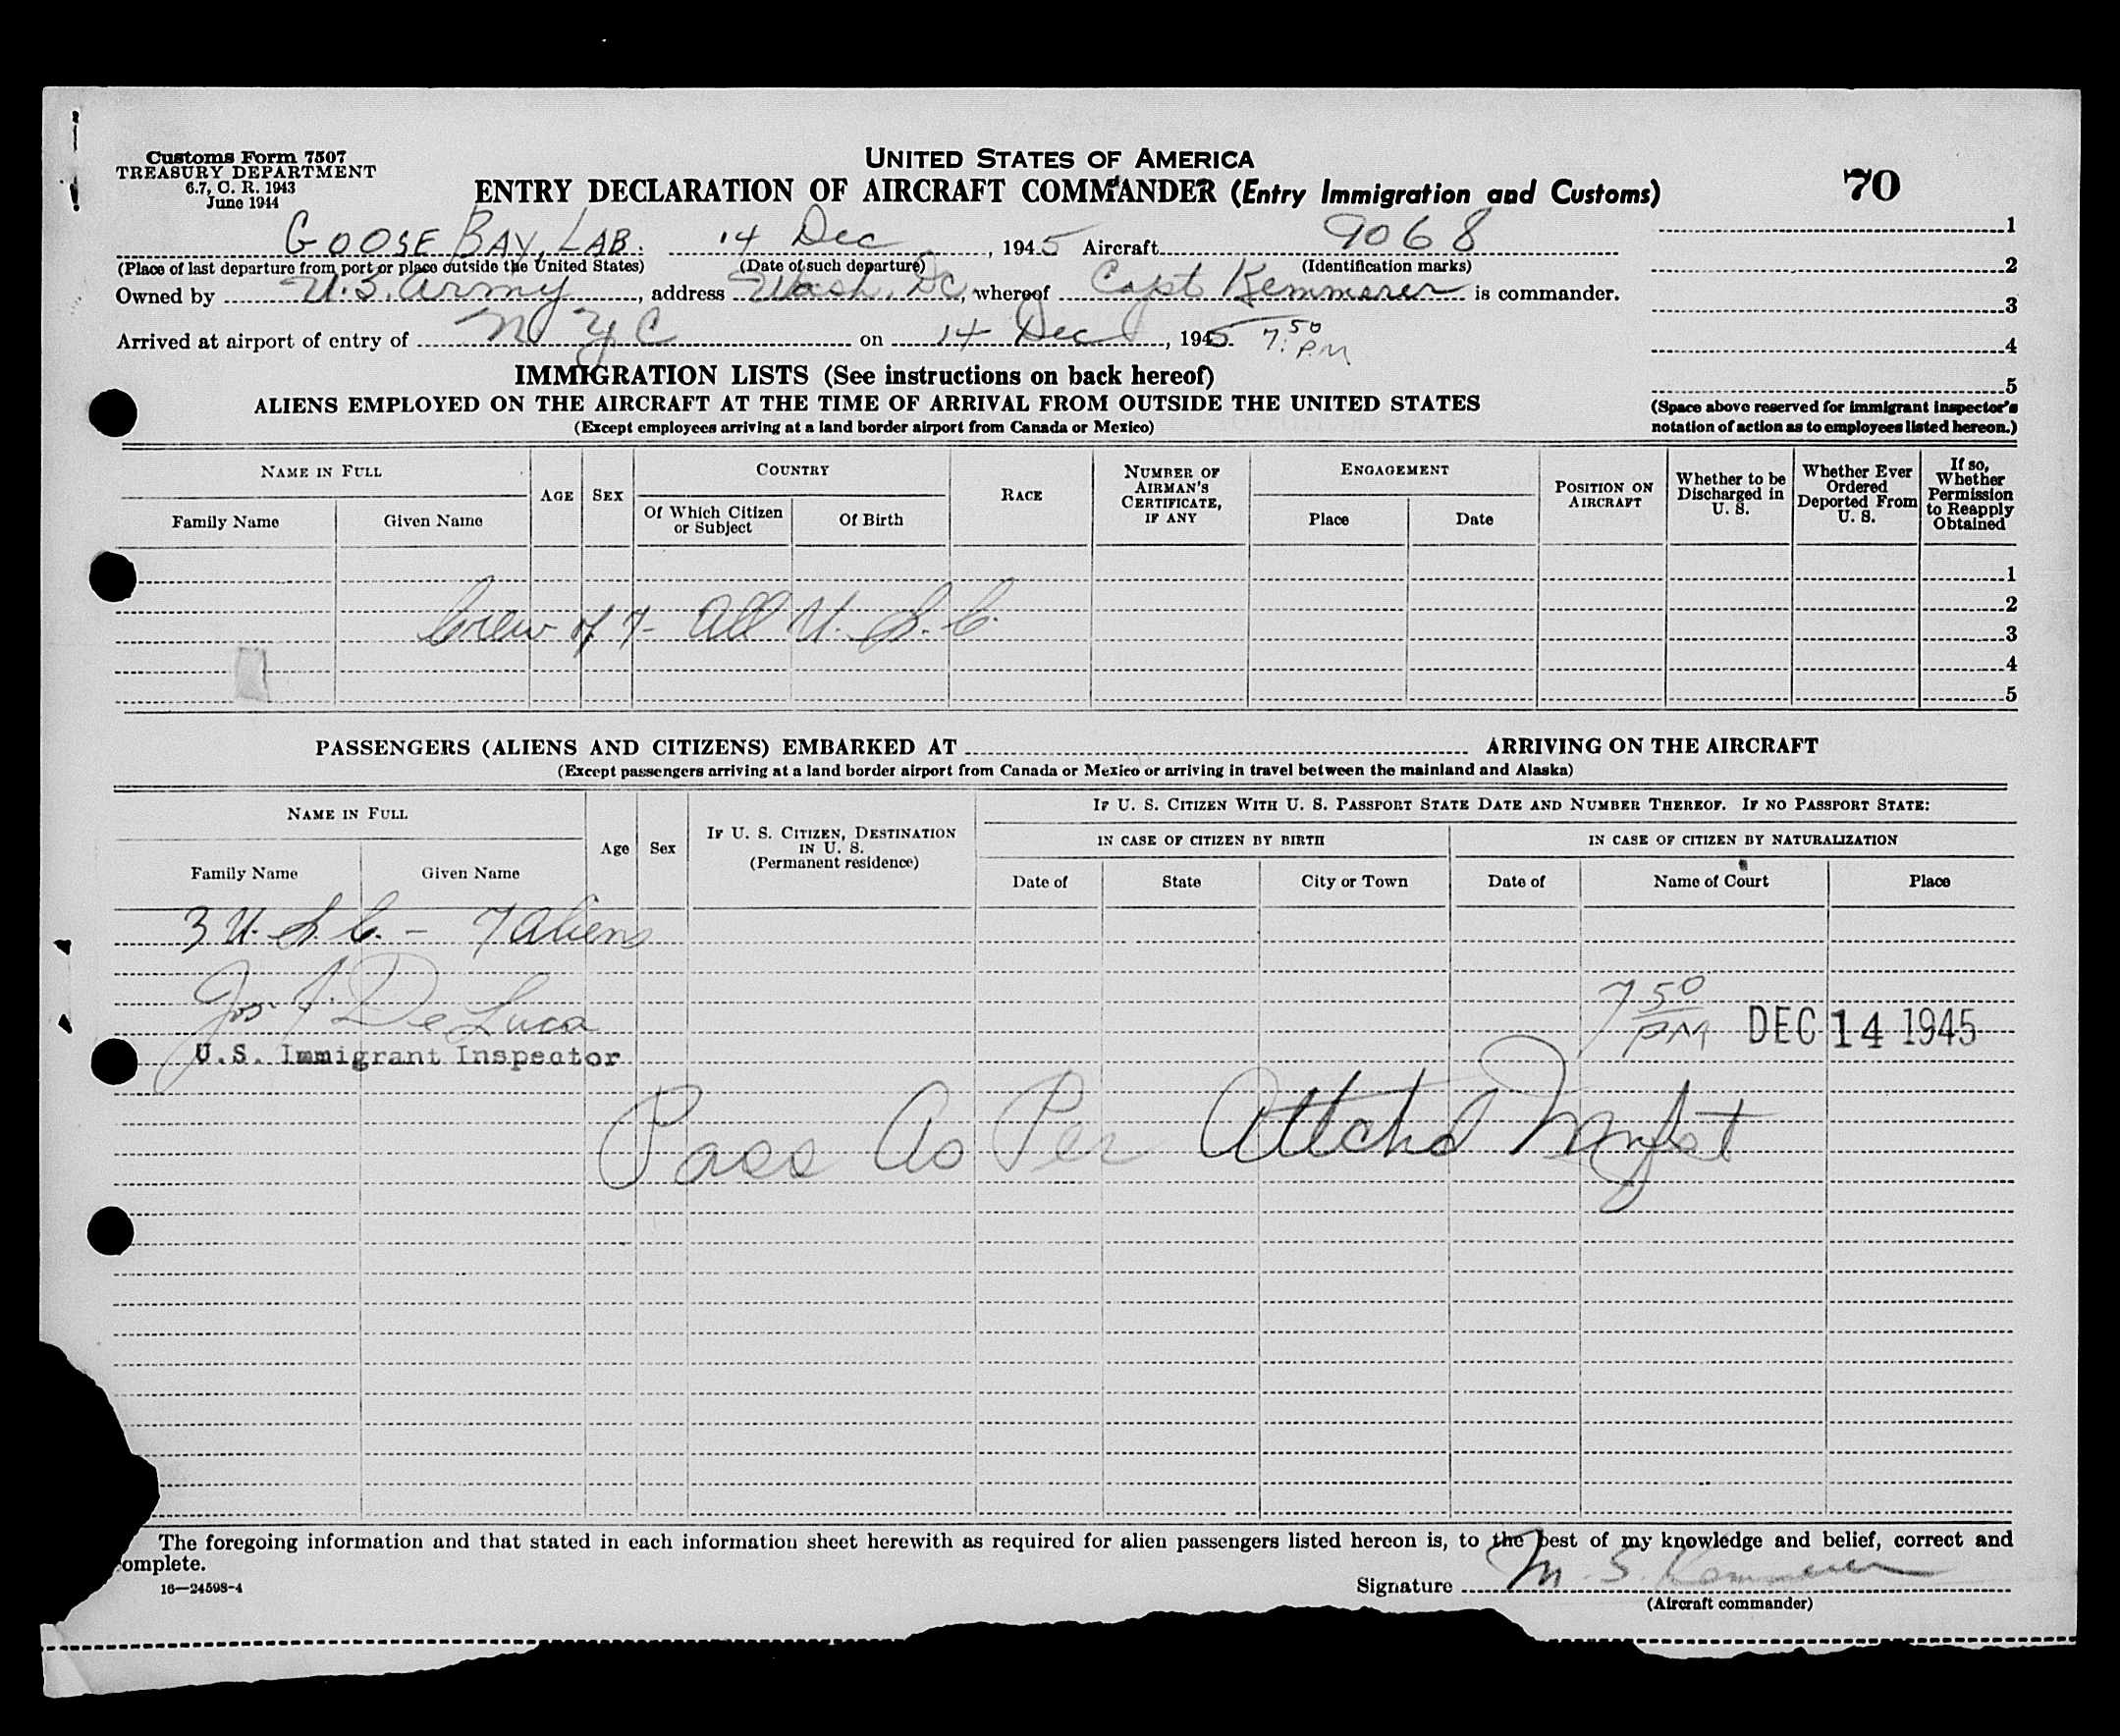 Customs Form 7507
TREASURY DEPARTMENT
6.7, C. R. 1943
June 1944
UNITED STATES OF AMERICA
ENTRY DECLARATION OF AIRCRAFT COMMANDER (Entry Immigration and Customs)
70
GOOSE BAY, LAB. 14 Dec, 1945 Aircraft 9068
(Place of last departure from port or place outside the United States) (Date of such departure) (Identification marks)
Owned by U.S. Army, address Wash. DC, whereof Capt Kemmerer is commander.
Arrived at airport of entry of N Y C on 14 Dec, 1945. 7:50 PM
1
2
3
4
5
(Space above reserved for immigrant inspector's
notation of action as to employees listed hereon.)
IMMIGRATION LISTS (See instructions on back hereof)
ALIENS EMPLOYED ON THE AIRCRAFT AT THE TIME OF ARRIVAL FROM OUTSIDE THE UNITED STATES
(Except employees arriving at a land border airport from Canada or Mexico)
NAME IN FULL
Family Name
Given Name
AGE
SEX
COUNTRY
Of Which Citizen
or Subject
Of Birth
RACE
NUMBER OF
AIRMAN'S
CERTIFICATE,
IF ANY
ENGAGEMENT
Place
Date
POSITION ON
AIRCRAFT
Whether to be
Discharged in
U. S.
Whether Ever
Ordered
Deported From
U. S.
If so,
Whether
Permission
to Reapply
Obtained
1
2
Crew of 7 - All U. S. C.
3
4
5
PASSENGERS (ALIENS AND CITIZENS) EMBARKED AT ARRIVING ON THE AIRCRAFT
(Except passengers arriving at a land border airport from Canada or Mexico or arriving in travel between the mainland and Alaska)
NAME IN FULL
Family Name
Given Name
Age
Sex
IF U. S. CITIZEN, DESTINATION
IN U. S.
(Permanent residence)
IF U. S. CITIZEN WITH U. S. PASSPORT STATE DATE AND NUMBER THEREOF. IF NO PASSPORT STATE:
IN CASE OF CITIZEN BY BIRTH
IN CASE OF CITIZEN BY NATURALIZATION
Date of
State
City or Town
Date of
Name of Court
Place
3 U. S. C. - 7 aliens
Jos. J. De Luca
U.S. Immigrant Inspector
7 50 PM DEC 14 1945
Pass As Per Attchd Mnfst
The foregoing information and that stated in each information sheet herewith as required for alien passengers listed hereon is, to the best of my knowledge and belief, correct and
omplete.
16—24598-4
Signature M. S. Kemmerer
(Aircraft commander)